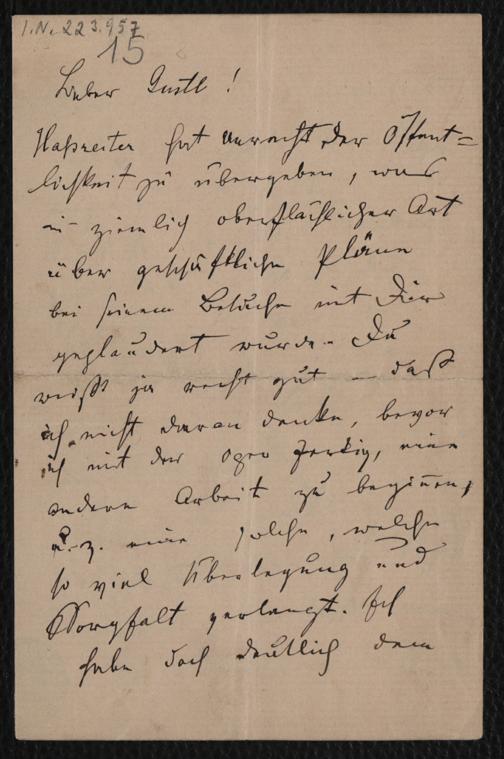 I.N. 223.957
15
Lieber Gustl!
Haßreiter hat unrecht, der Öffent=
lichkeit zu übergeben, was
in ziemlich oberflächlicher Art
über geschäftliche Pläne
bei seinem Besuche mit Dir
geplaudert wurde. Du
weißt ja recht gut – daß
ich nicht daran denke, bevor
ich mit der Oper fertig, eine
andere Arbeit zu beginnen,
u. z. eine solche, welche
so viel Überlegung und
Sorgfalt verlangt. Ich
habe doch deutlich dem